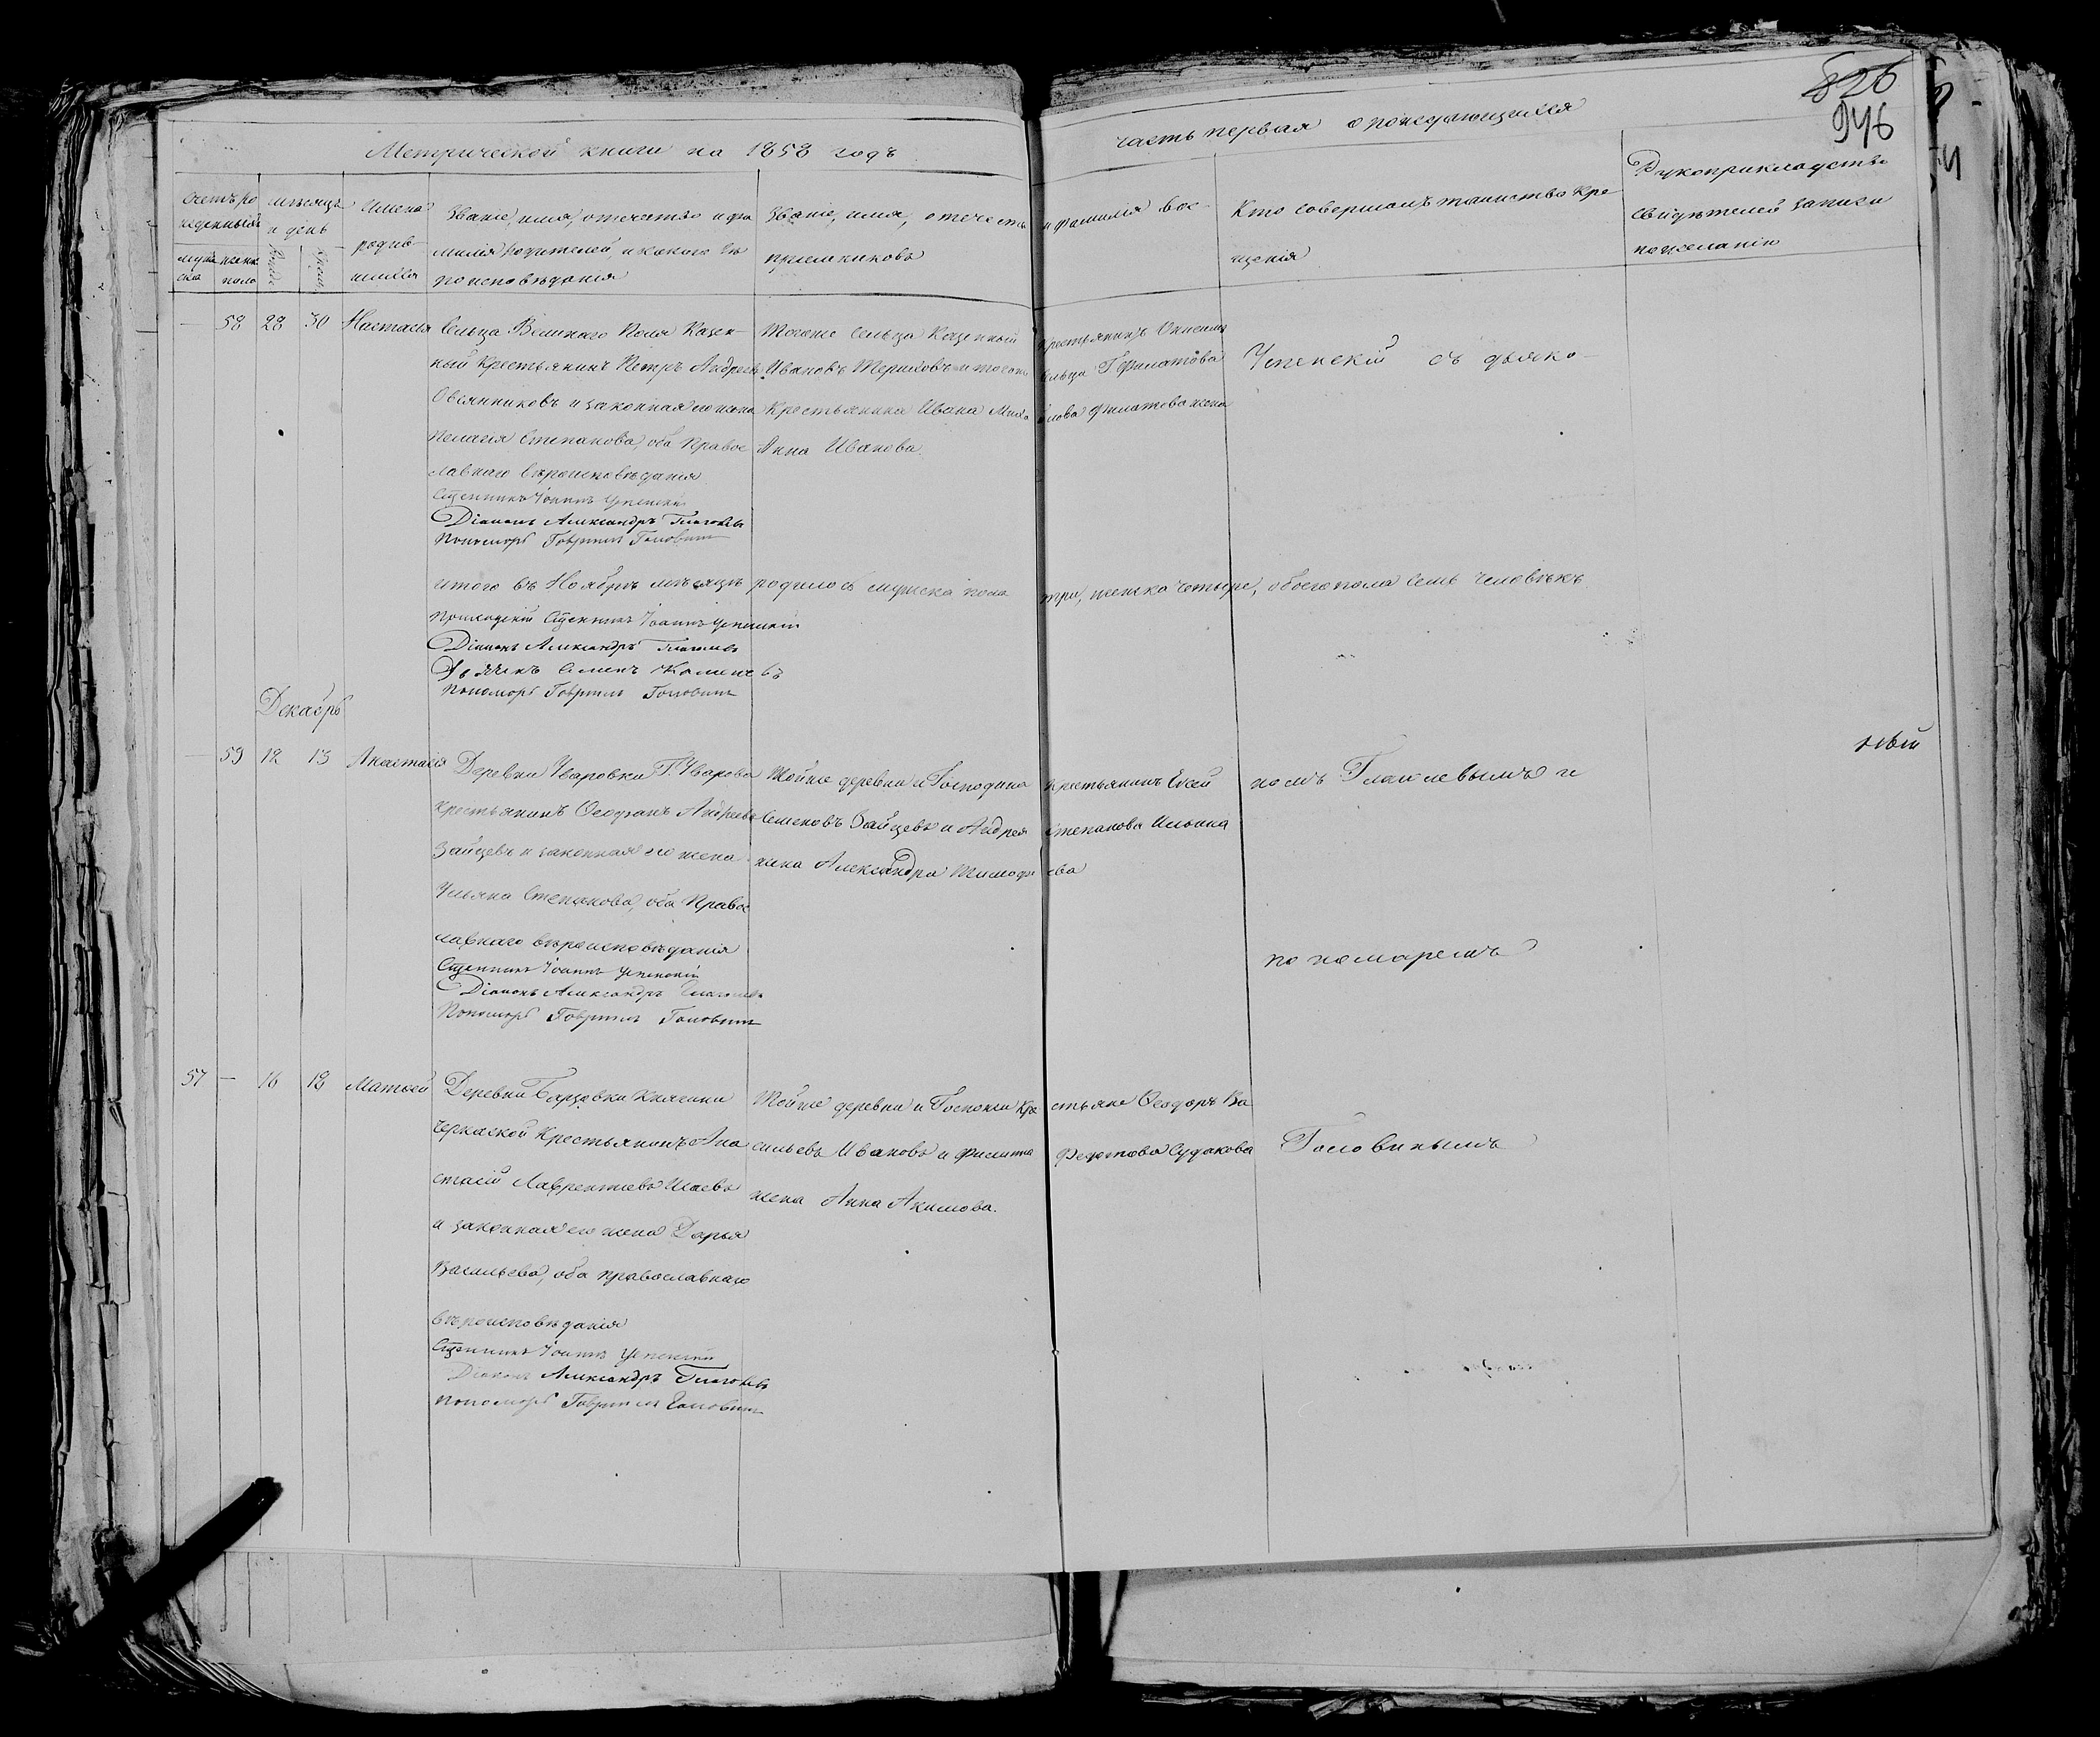 826
946
Метрической книги на 1858 годъ часть первая о пождающихся
Счетъ ро
жденныхъ
муже
ска
женс
пола
мѣсяцъ
и день
Имена
родив
шихся
Званіе, имя, отечество и фа
милія родителей, и какого вѣ
роисповѣданія
Званіе, имя, отечество и фамилія вос-
пріемниковъ
Кто совершалъ таинство кре
щенія
Рукоприкладство
свидѣтелей записи
по желанію
— 58 28 30 Настасія
Сельца Великаго Поля Казен-
ный крестьянинъ Петръ Андреевъ
Овсянниковъ и законная его жена
Пелагія Степанова, оба Правос
лавнаго вѣроисповѣданія
Священникъ Іоаннъ Успенскій
Діаконъ Александръ Глаголевъ
Пономарь Гавріилъ Головинъ
Тогоже сельца Казенный крестьянинъ
Ивановъ Териховъ и тогоже сельца Г. Филатова
Крестьянина Ивана Михайлова Филатова жена
Анна Иванова.
Успенскій съ дьяко-
итого въ Ноябрѣ мѣсяцѣ родилось мужска пола три, женска четыре, обоего пола семь человѣкъ
Приходскій Священникъ Іоаннъ Успенскій
Діаконъ Александръ Глаголевъ
Дьячекъ Семенъ
Пономарь Гавріилъ Головинъ
Декабрь
— 59 12 13 Анастасія
Деревни Уваровки Г. Уварова
крестьянинъ Ѳеофанъ Андреевъ
Зайцевъ и законная его жена
Ульяна Степанова, оба Правос
лавнаго вѣроисповѣданія
Священникъ Іоаннъ Успенскій
Діаконъ Александръ Глаголевъ
Пономарь Гавріилъ Головинъ
Тойже деревни и Господина крестьянинъ
Семеновъ Зайцевъ и Андрея Степанова Ильина
жена Александра Тимофеева
номъ Глаголевымъ и
пономаремъ
ный
57 — 16 18 Матвей
Деревни Борзовки Княгини
Черкаской Крестьянинъ Ана
стасій Лаврентьевъ Исаевъ
и законная его жена Дарья
Васильева, оба православнаго
вѣроисповѣданія
Священникъ Іоаннъ Успенскій
Діаконъ Александръ Глаголевъ
Пономарь Гавріилъ Головинъ
Тойже деревни и Госпожи крестьяне Ѳеодоръ Ва
сильевъ Ивановъ и Филиппа Федотова Судакова
жена Анна Акимова.
Головинымъ